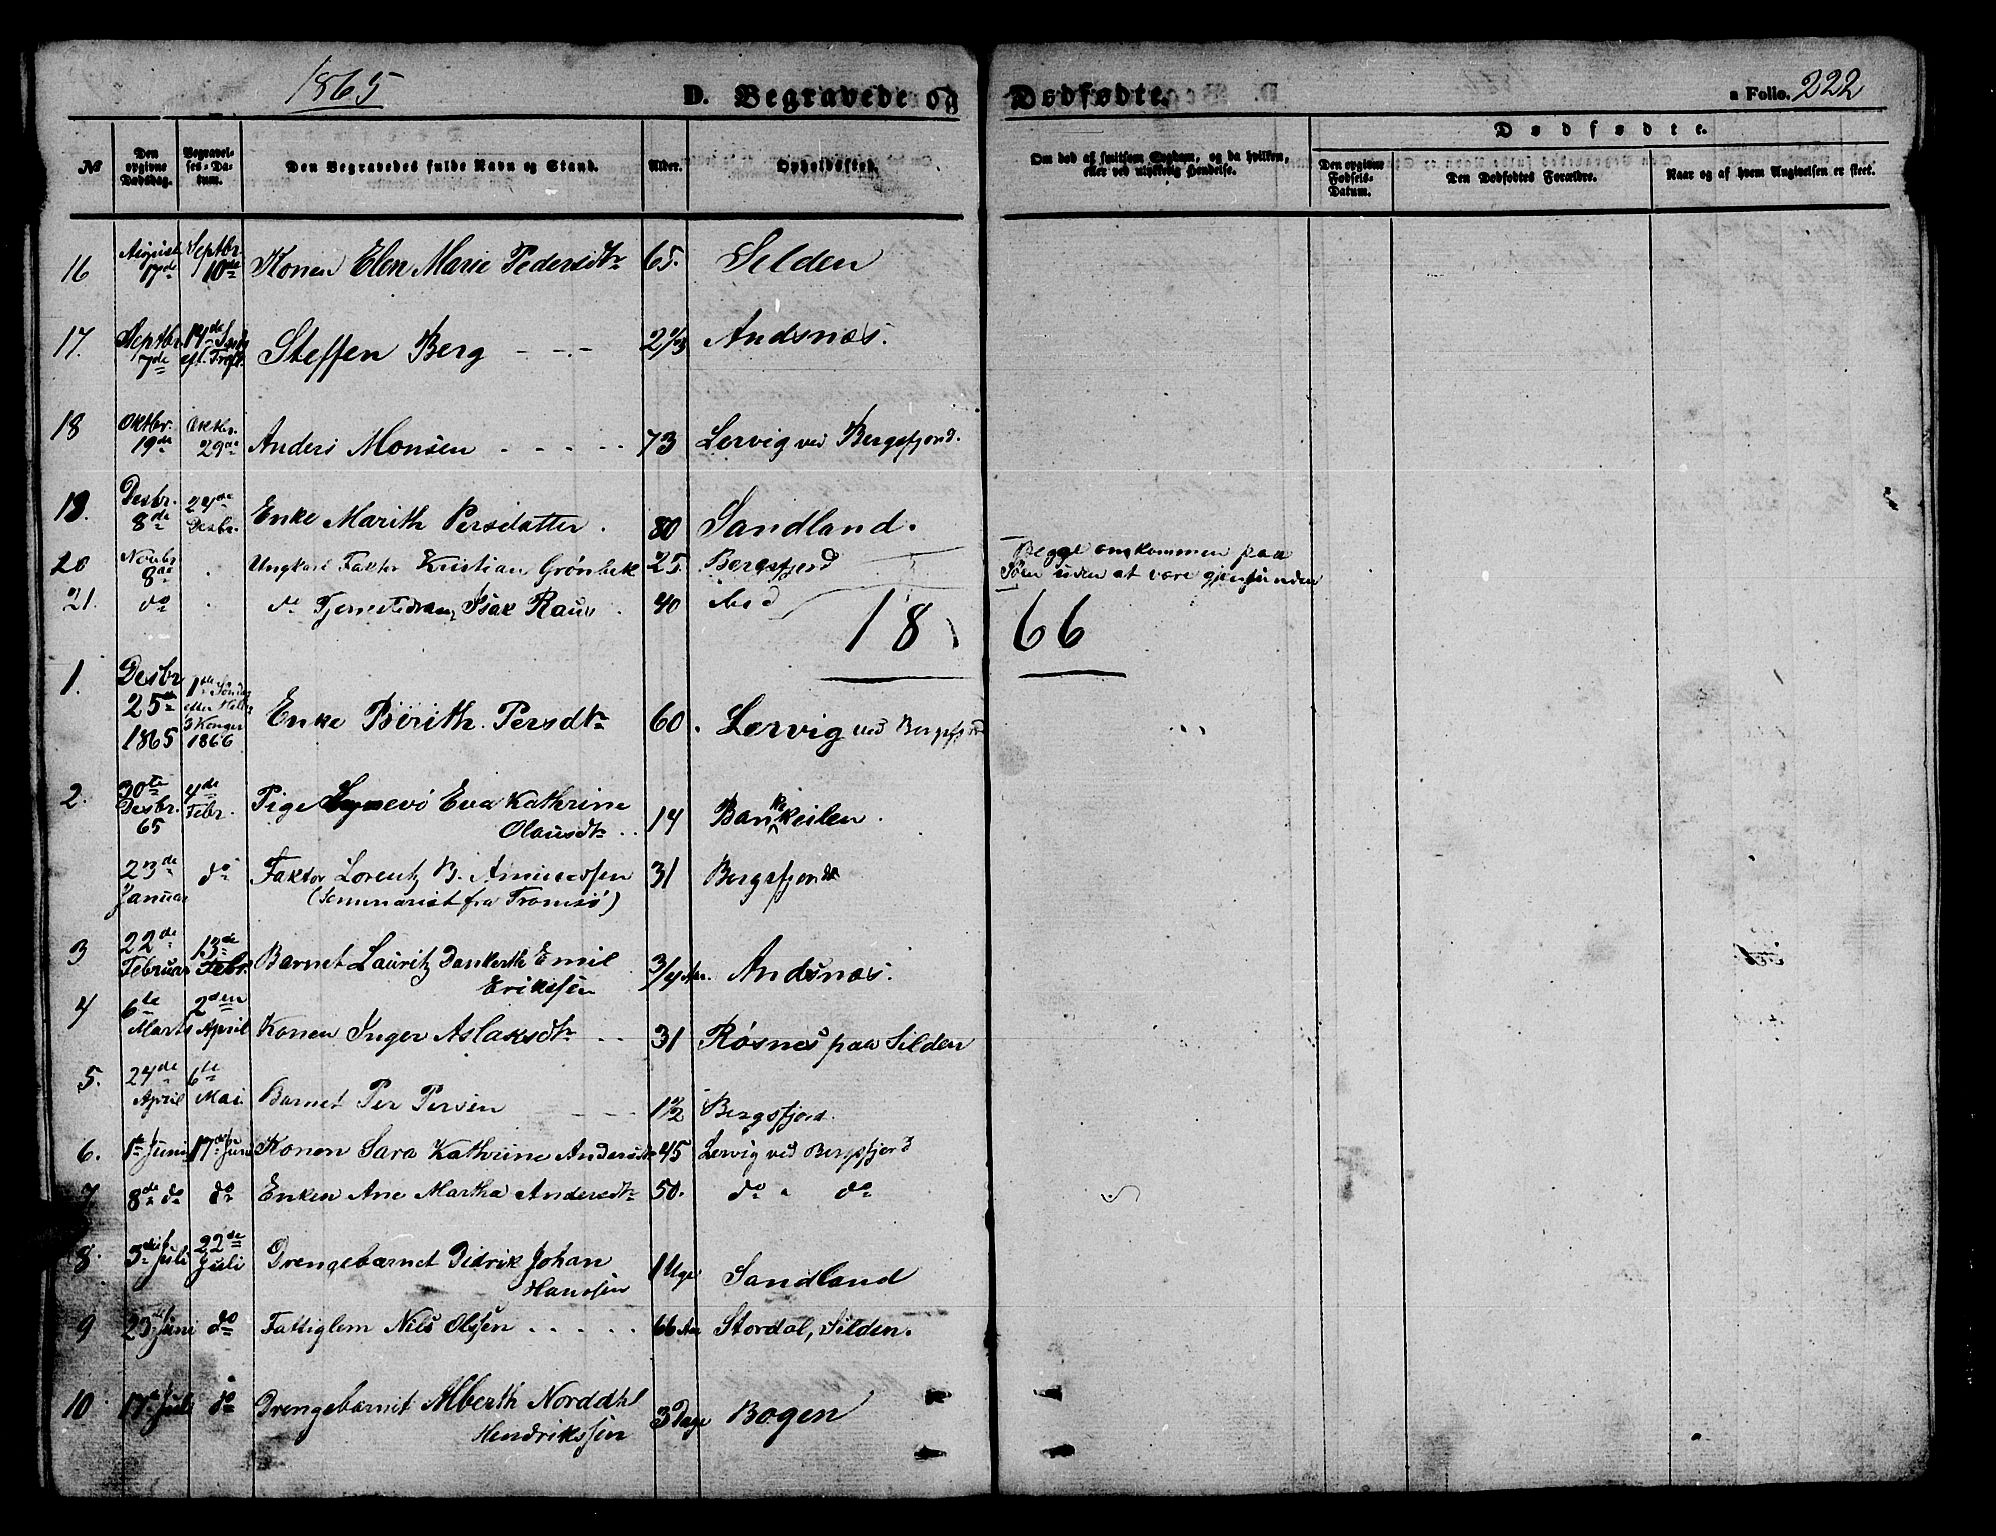 1865
D. Begravede og Dødfødte.
a Folio. 222
Dødfødte.
No
Den opgivne Dødsdag.
Begravelses-Datum.
Den Begravedes fulde Navn og Stand.
Alder.
Opholdssted.
Om død af smitsom Sygdom, og da hvilken, eller ved ulykkelig Hændelse.
Den opgivne Fødsels-Datum.
Den Dødfødtes Forældre.
Naar og af hvem Angivelsen er skeet.
16 August 17de Septbr. 10de Konen Elen Marie Pedersdtr 65. Silden
17. Septbr. 7de 14de Sønd. eft. Treft. Steffen Berg 2 1/3 Andsnæs.
18 Oktbr. 19de Oktbr. 29de Anders Monsen 73 Lervig ved Bergsfjord.
19. Desbr. 8de 24de Desbr. Enke Marith Persdatter. 80 Sandland.
20 Novbr. 8de Ungkarl Faktor Kristian Grønbek 25 Bergsfjord
Begge omkommen paa
Søen uden at være gjenfunden
21. do do Tjenestedreng Isak Raus 40 ibid
18 66
1. Desbr 25de 1865 1te Søndag efter Hell. 3 Konger 1866 Enke Berith Persdtr 60. Lervig ved Bergsfjord
2. 30te Desbr. 65 4de Febr. Pige Eva Kathrine
Olausdtr 14 Bankekeilen.
23de Januar do Faktor Lorentz B. 31 Bergsfjord
(Seminarist fra Tromsø)
3 22de Februar 13de Febr. Barnet Lauritz Dankerth Emil
Erikssen 3/4 Aar. Andsnæs.
4 6te Marts 2den April Konen Inger Aslaksdtr 31 Røsnes paa Silden
5. 24de April 6te Mai Barnet Per Persen 1 1/2 Bergsfjord.
6. 1te Juni 17de Juni Konen Sara Kathrine Andersdtr 45 Lervig ved Bergsfjord
7 8de do do Enken Ane Martha Andersdtr 50. do " do
8. Juli 22de Juli Drengebarnet Didrik Johan
Hanssen 1 Uge Sandland
9 23de Juni do Fattiglem Nils Olssen 66 Aar Stordal, Silden.
10 17de Juli do Drengebarnet Alberth Norddhl
Hendrikssen 3 Dage Bogen